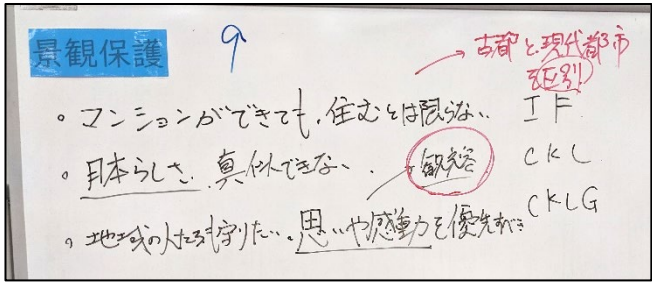 景観保護
9
→ 古都と現代都市
を区別
・マンションができても、住むとは限らない。
IF
・日本らしさ、真似できない。
観光客
CKL
・地域の人たちも守りたい。思いや感動力を優先すべき
CKLG